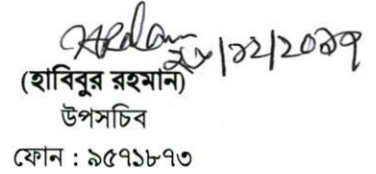 ২৮/১২/২০১৭
(হাবিবুর রহমান)
উপসচিব
ফোন : ৯৫৭১৮৭৩